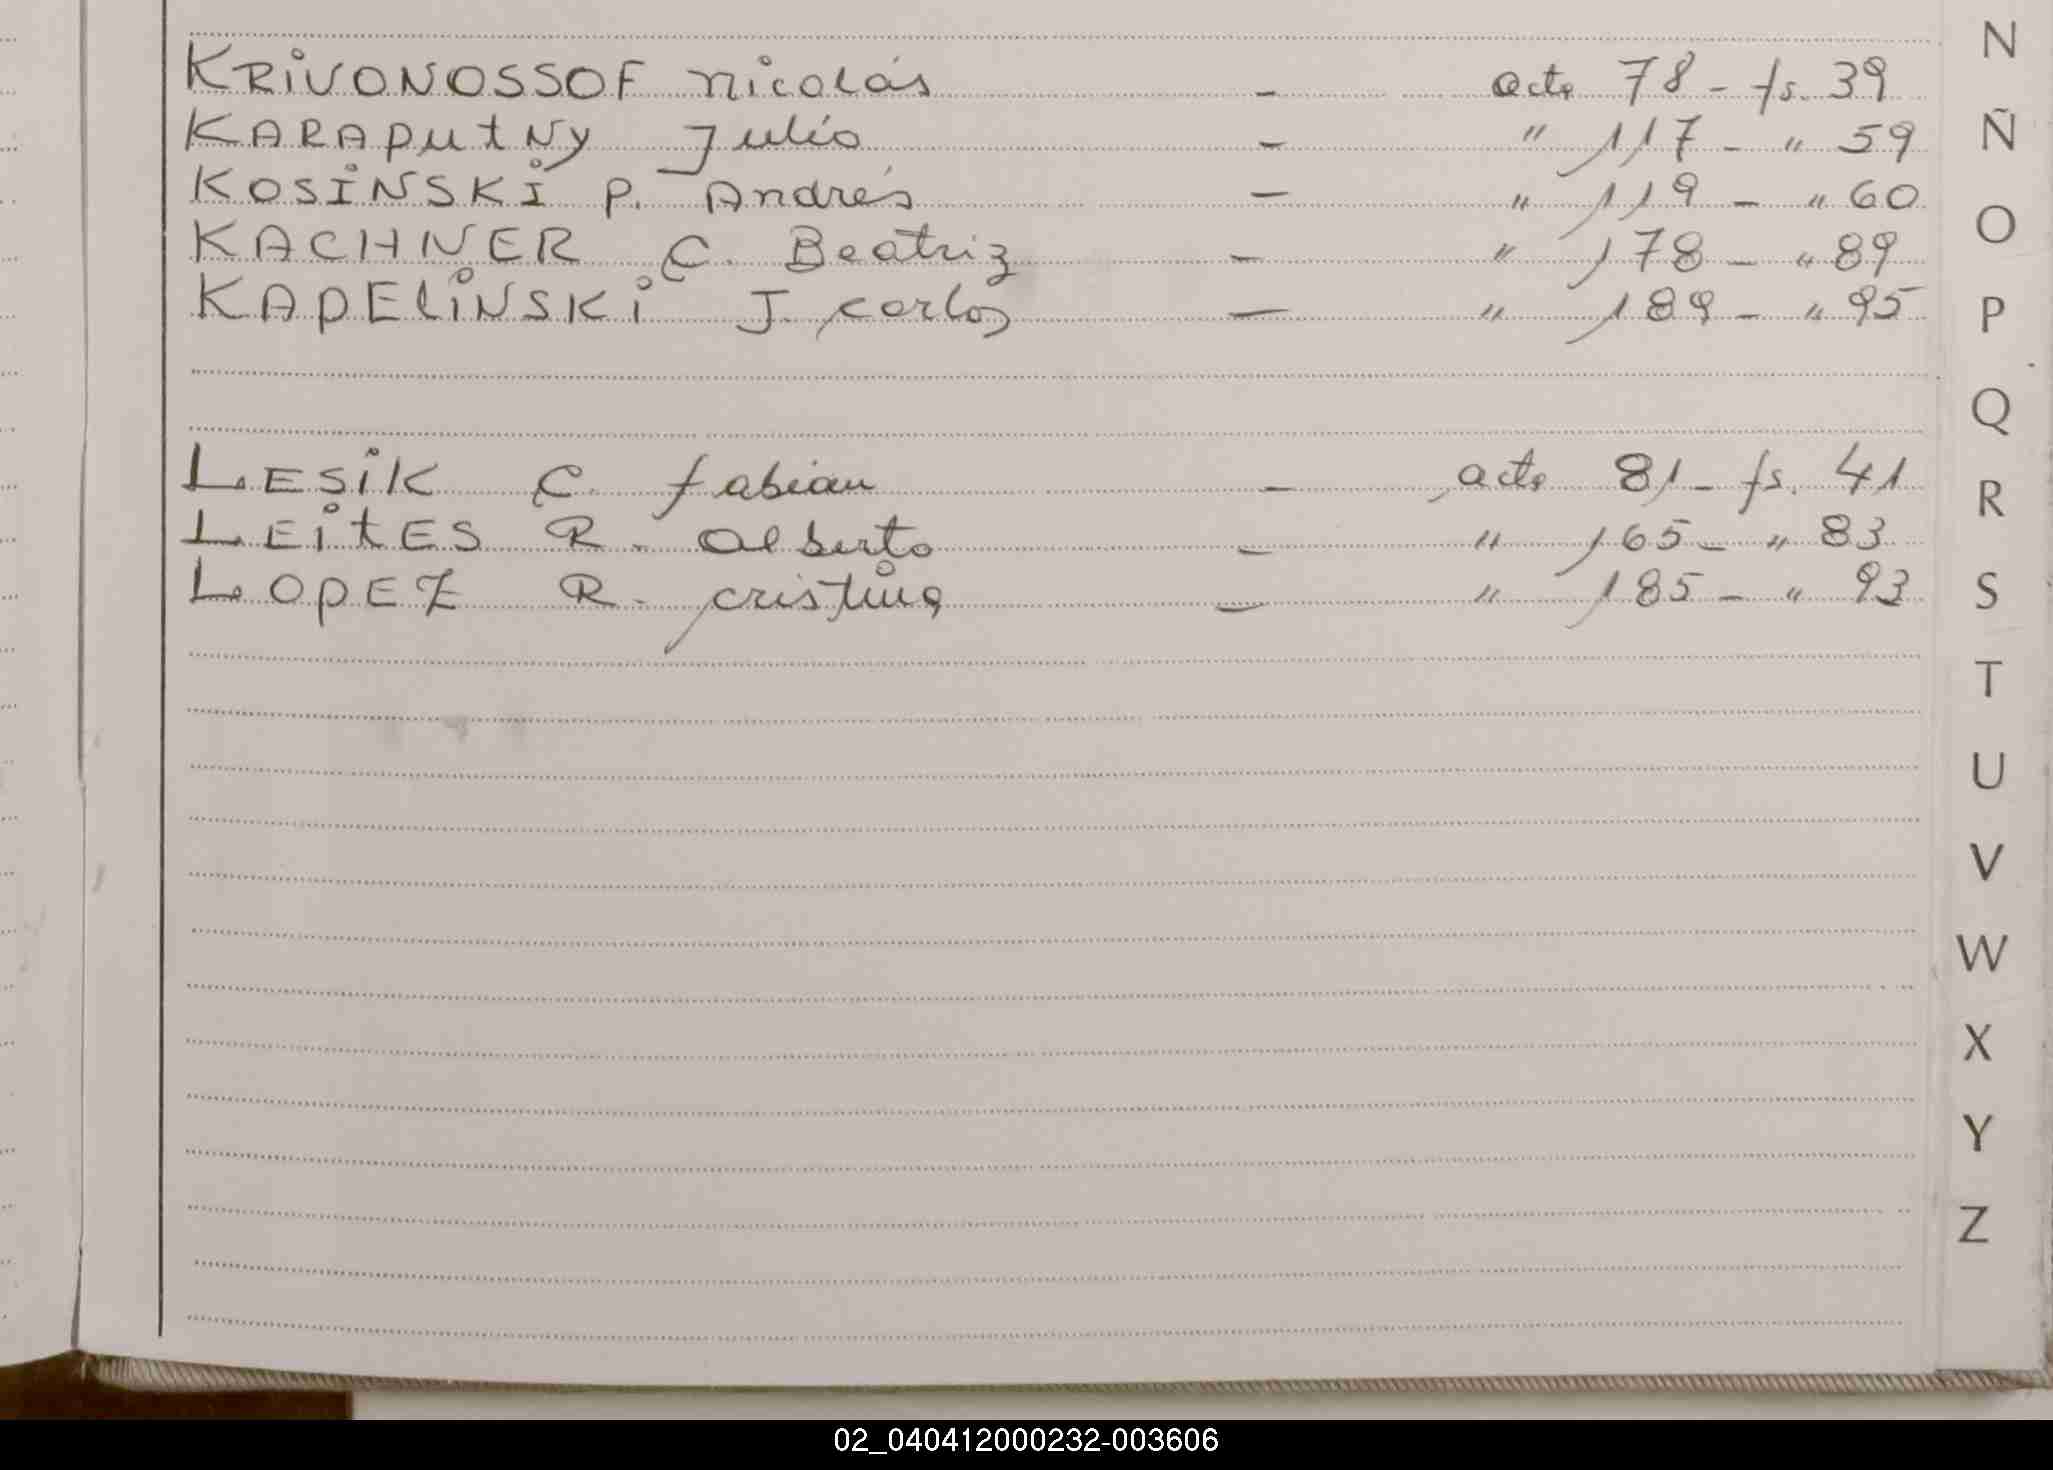 KRIVONOSSOF Nicolás - acta 78 - fs. 39
KARAPUTNY Julio - " 117 - " 59
KOSINSKI P. Andrés - " 119 - " 60
KACHNER C. Beatriz - " 178 - " 89
KAPELINSKI J. Carlos - " 189 - " 95
LESIK C. Fabian - acta 81 - fs. 41
LEITES R. Alberto - " 165 - " 83
LOPEZ R. Cristina - " 185 - " 93
N
Ñ
O
P
Q
R
S
T
U
V
W
X
Y
Z
02_040412000232-003606